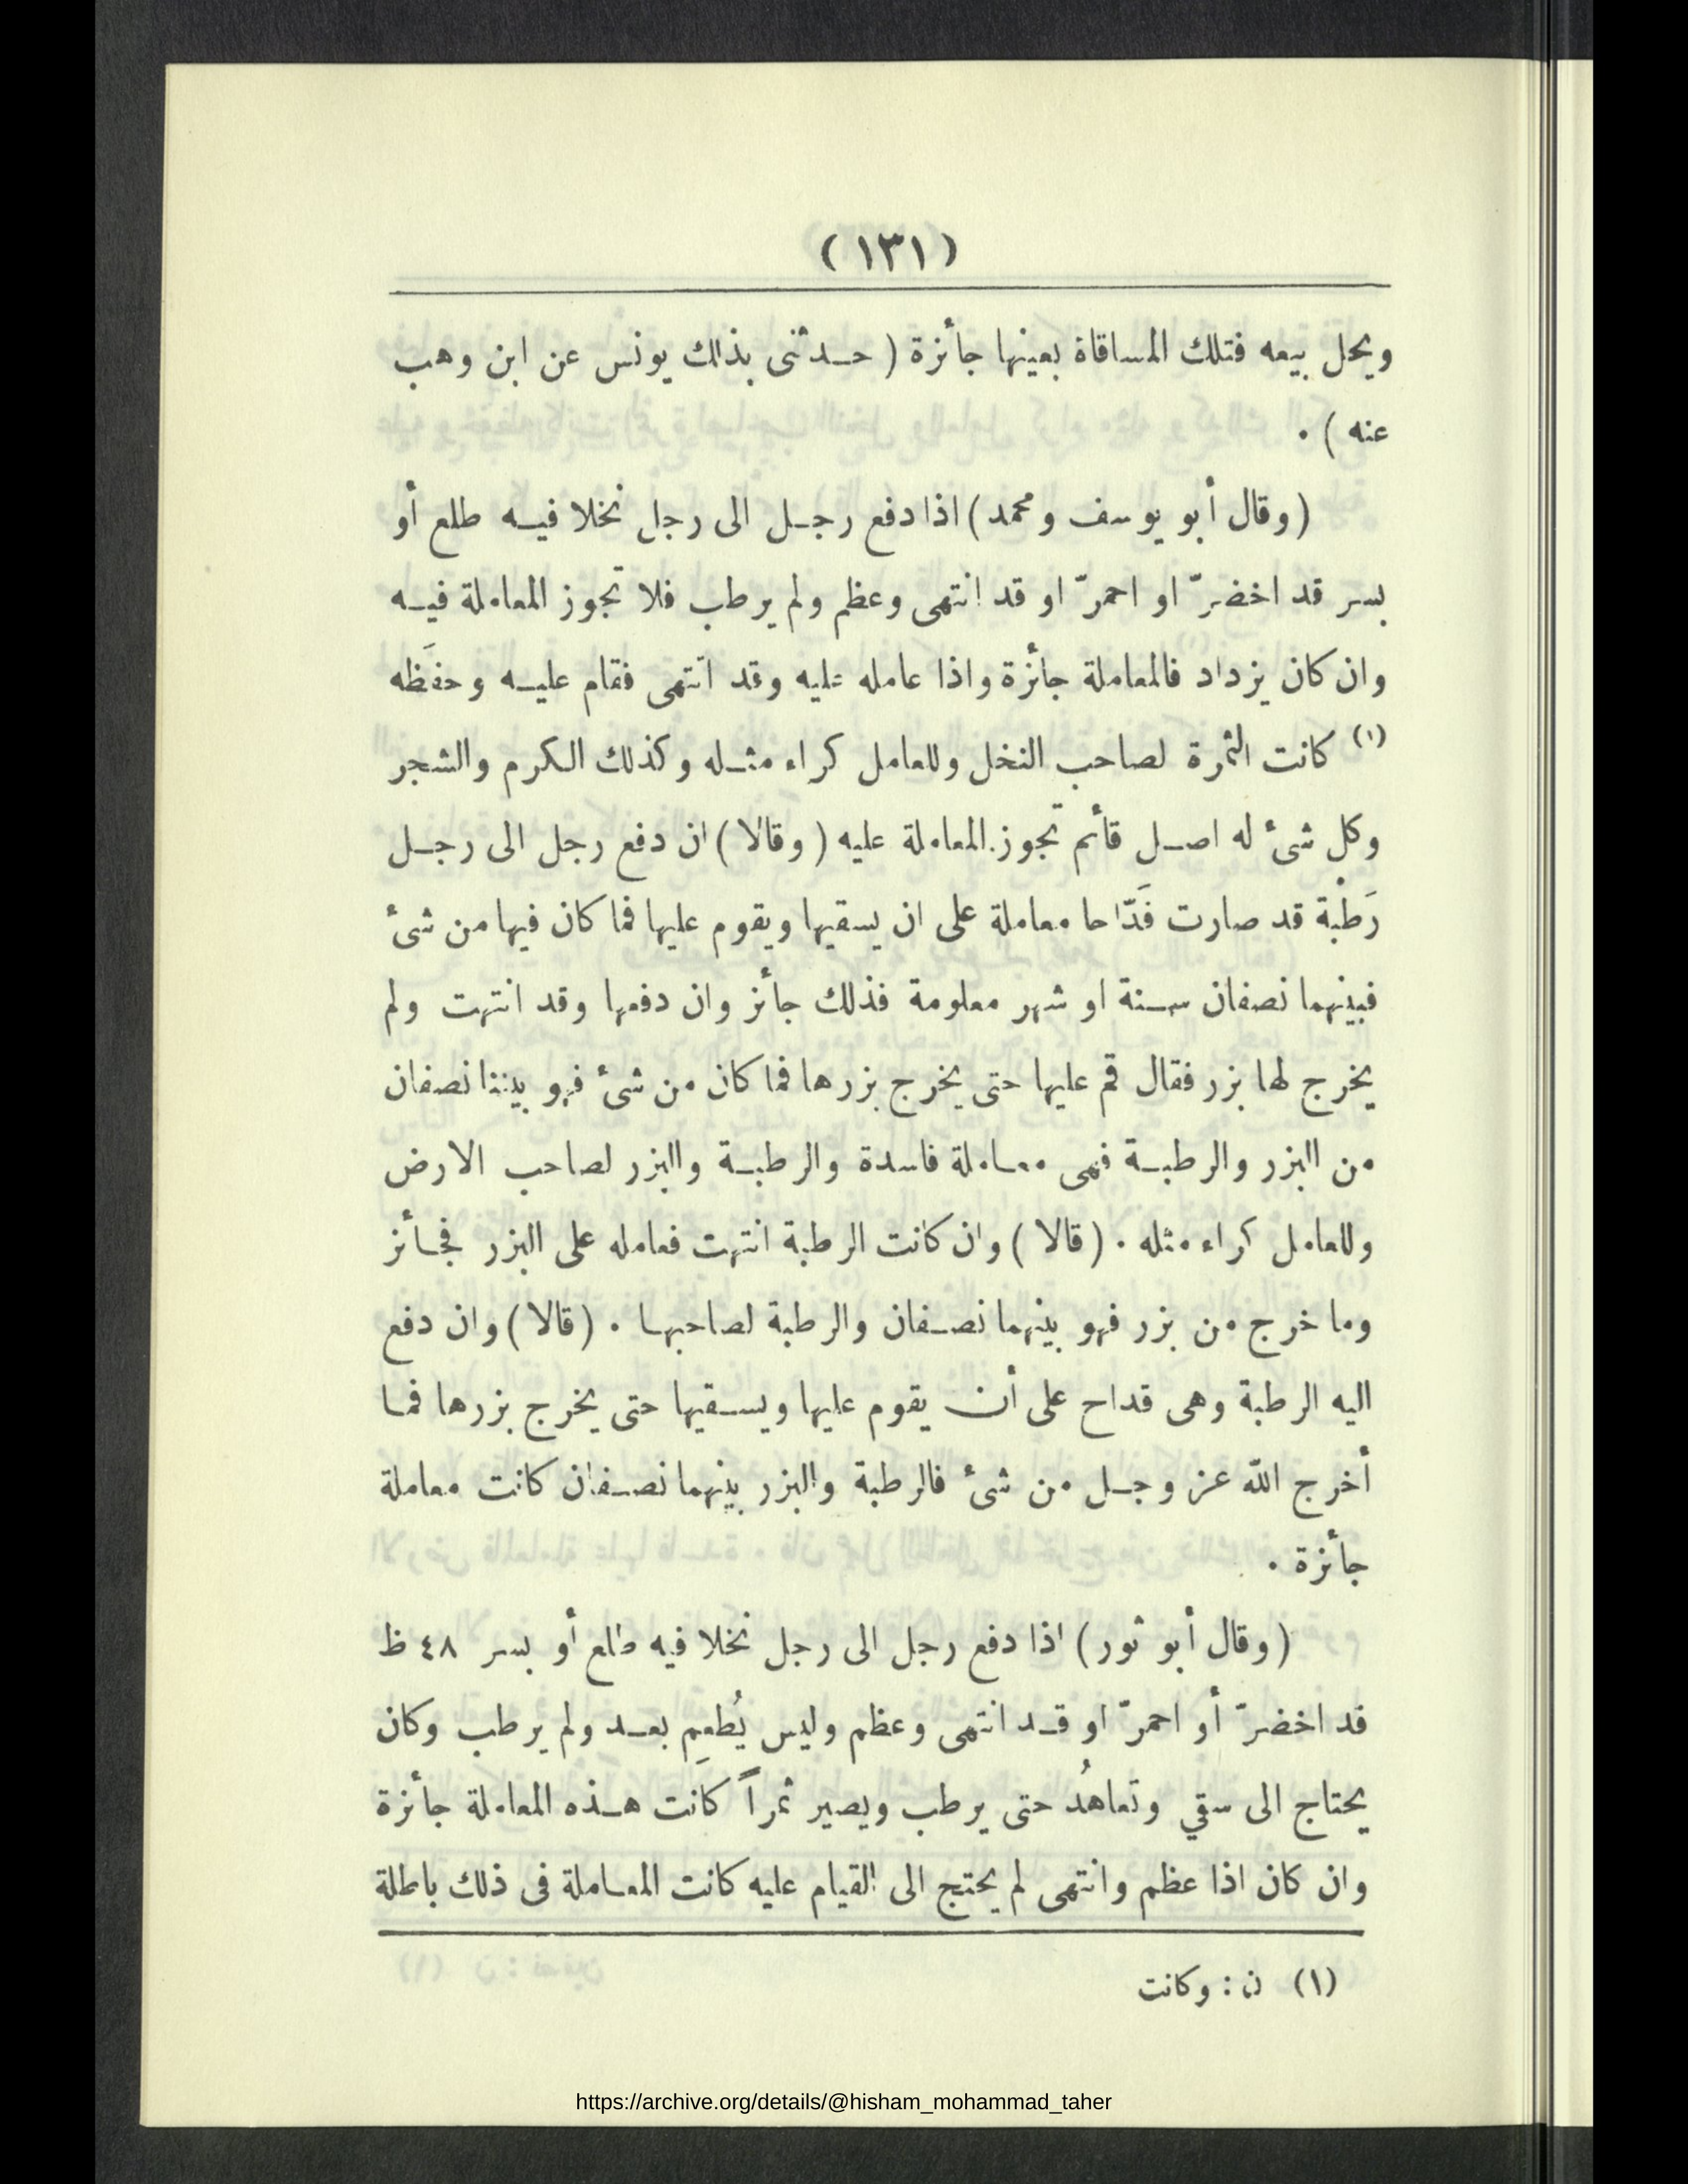 (١٣١)
ويحل بيعه فتلك المساقاة بعينها جائزة ( حدثنى بذلك يونس عن ابن وهب
عنه ) .
(وقال أبو يوسف ومحمد) اذا دفع رجل الى رجل نخلا فيه طلع أو
بسر قد اخضرّ او احمرّ او قد انتهى وعظم ولم يرطب فلا تجوز المعاملة فيه
وان كان يزداد فالمعاملة جائزة واذا عامله عليه وقد انتهى فقام عليه وحفَظه
(١) كانت الثمرة لصاحب النخل وللعامل كراء مثله وكذلك الكرم والشجر
وكل شئ له اصل قائم تجوز المعاملة عليه ( وقالا ) ان دفع رجل الى رجل
رَطْبة قد صارت قَدّاحا معاملة على ان يسقيها ويقوم عليها فما كان فيها من شئ
فبينهما نصفان سنة او شهر معلومة فذلك جائز وان دفعها وقد انتهت ولم
يخرج لها بزر فقال قم عليها حتى يخرج بزرها فما كان من شئ فهو بيننا نصفان
من البزر والرطبة فهى معاملة فاسدة والرطبة والبزر لصاحب الارض
وللعامل كراء مثله . ( قالا ) وان كانت الرطبة انتهت فعامله على البزر فجائز
وما خرج من بزر فهو بينهما نصفان والرطبة لصاحبها . ( قالا ) وان دفع
اليه الرطبة وهى قداح على أن يقوم عليها ويسقيها حتى يخرج بزرها فما
أخرج الله عز وجل من شئ فالرطبة والبزر بينهما نصفان كانت معاملة
جائزة .
( وقال أبو ثور ) اذا دفع رجل الى رجل نخلا فيه طلع أو بسر ٤٨ ظ
قد اخضرّ أو احمرّ او قد انتهى وعظم وليس يُطعِم بعد ولم يرطب وكان
يحتاج الى سقي وتعاهُد حتى يرطب ويصير تمراً كانت هذه المعاملة جائزة
وان كان اذا عظم وانتهى لم يحتج الى القيام عليه كانت المعاملة فى ذلك باطلة
(١) ن : وكانت
https://archive.org/details/@hisham_mohammad_taher